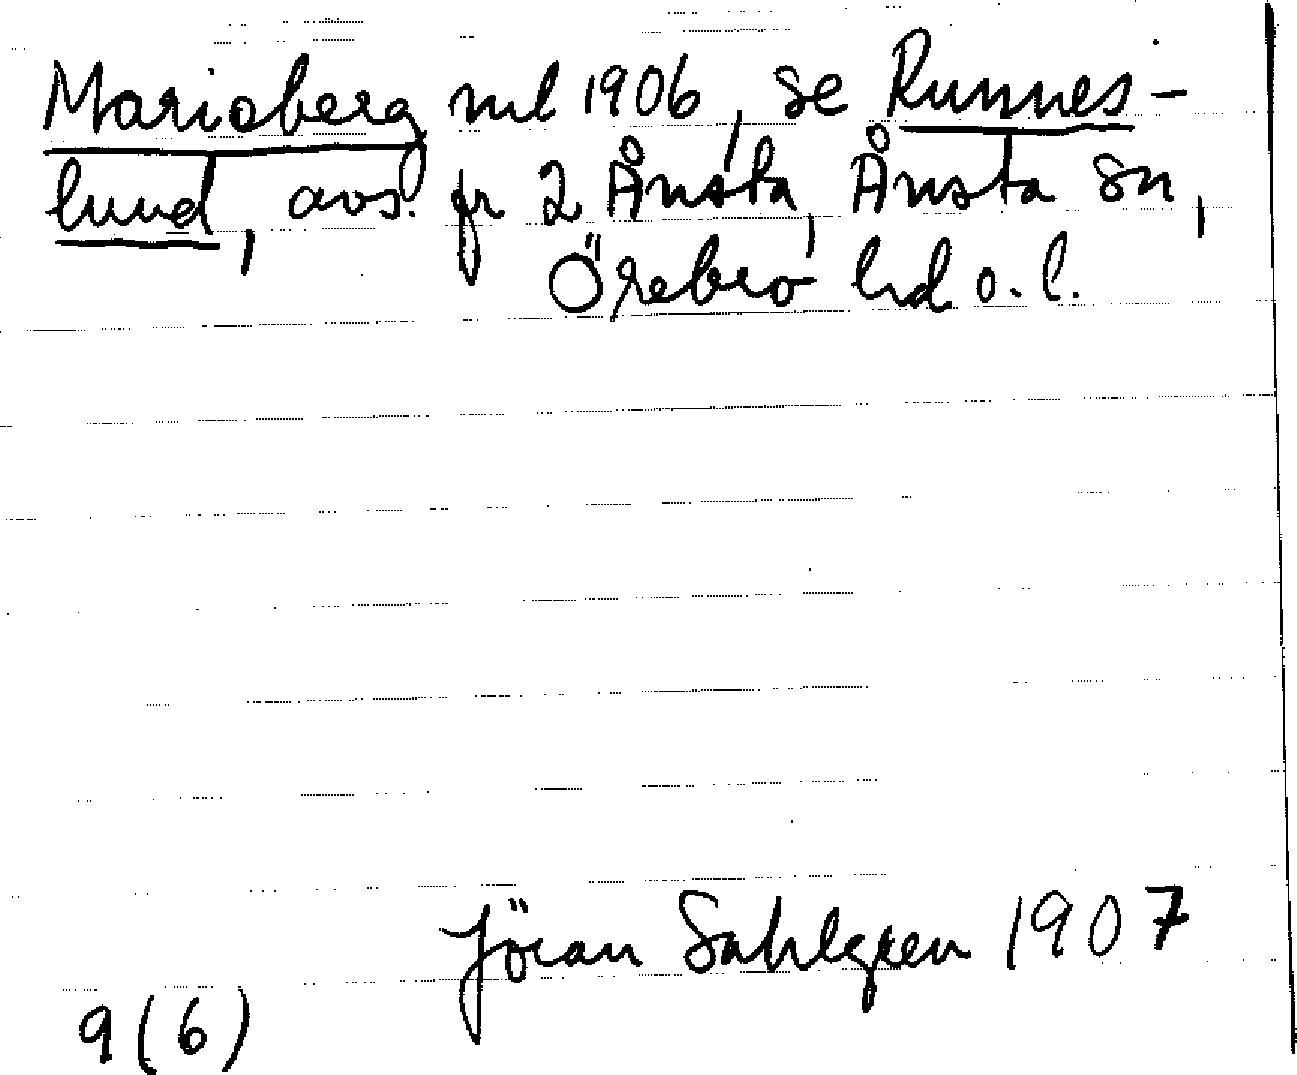 Marioberg ml 1906, se Runnes-
lund, avs. fr 2 Ånsta, Ånsta sn,
Örebro hd o. l.
Jöran Sahlgren 1907
9 (6)